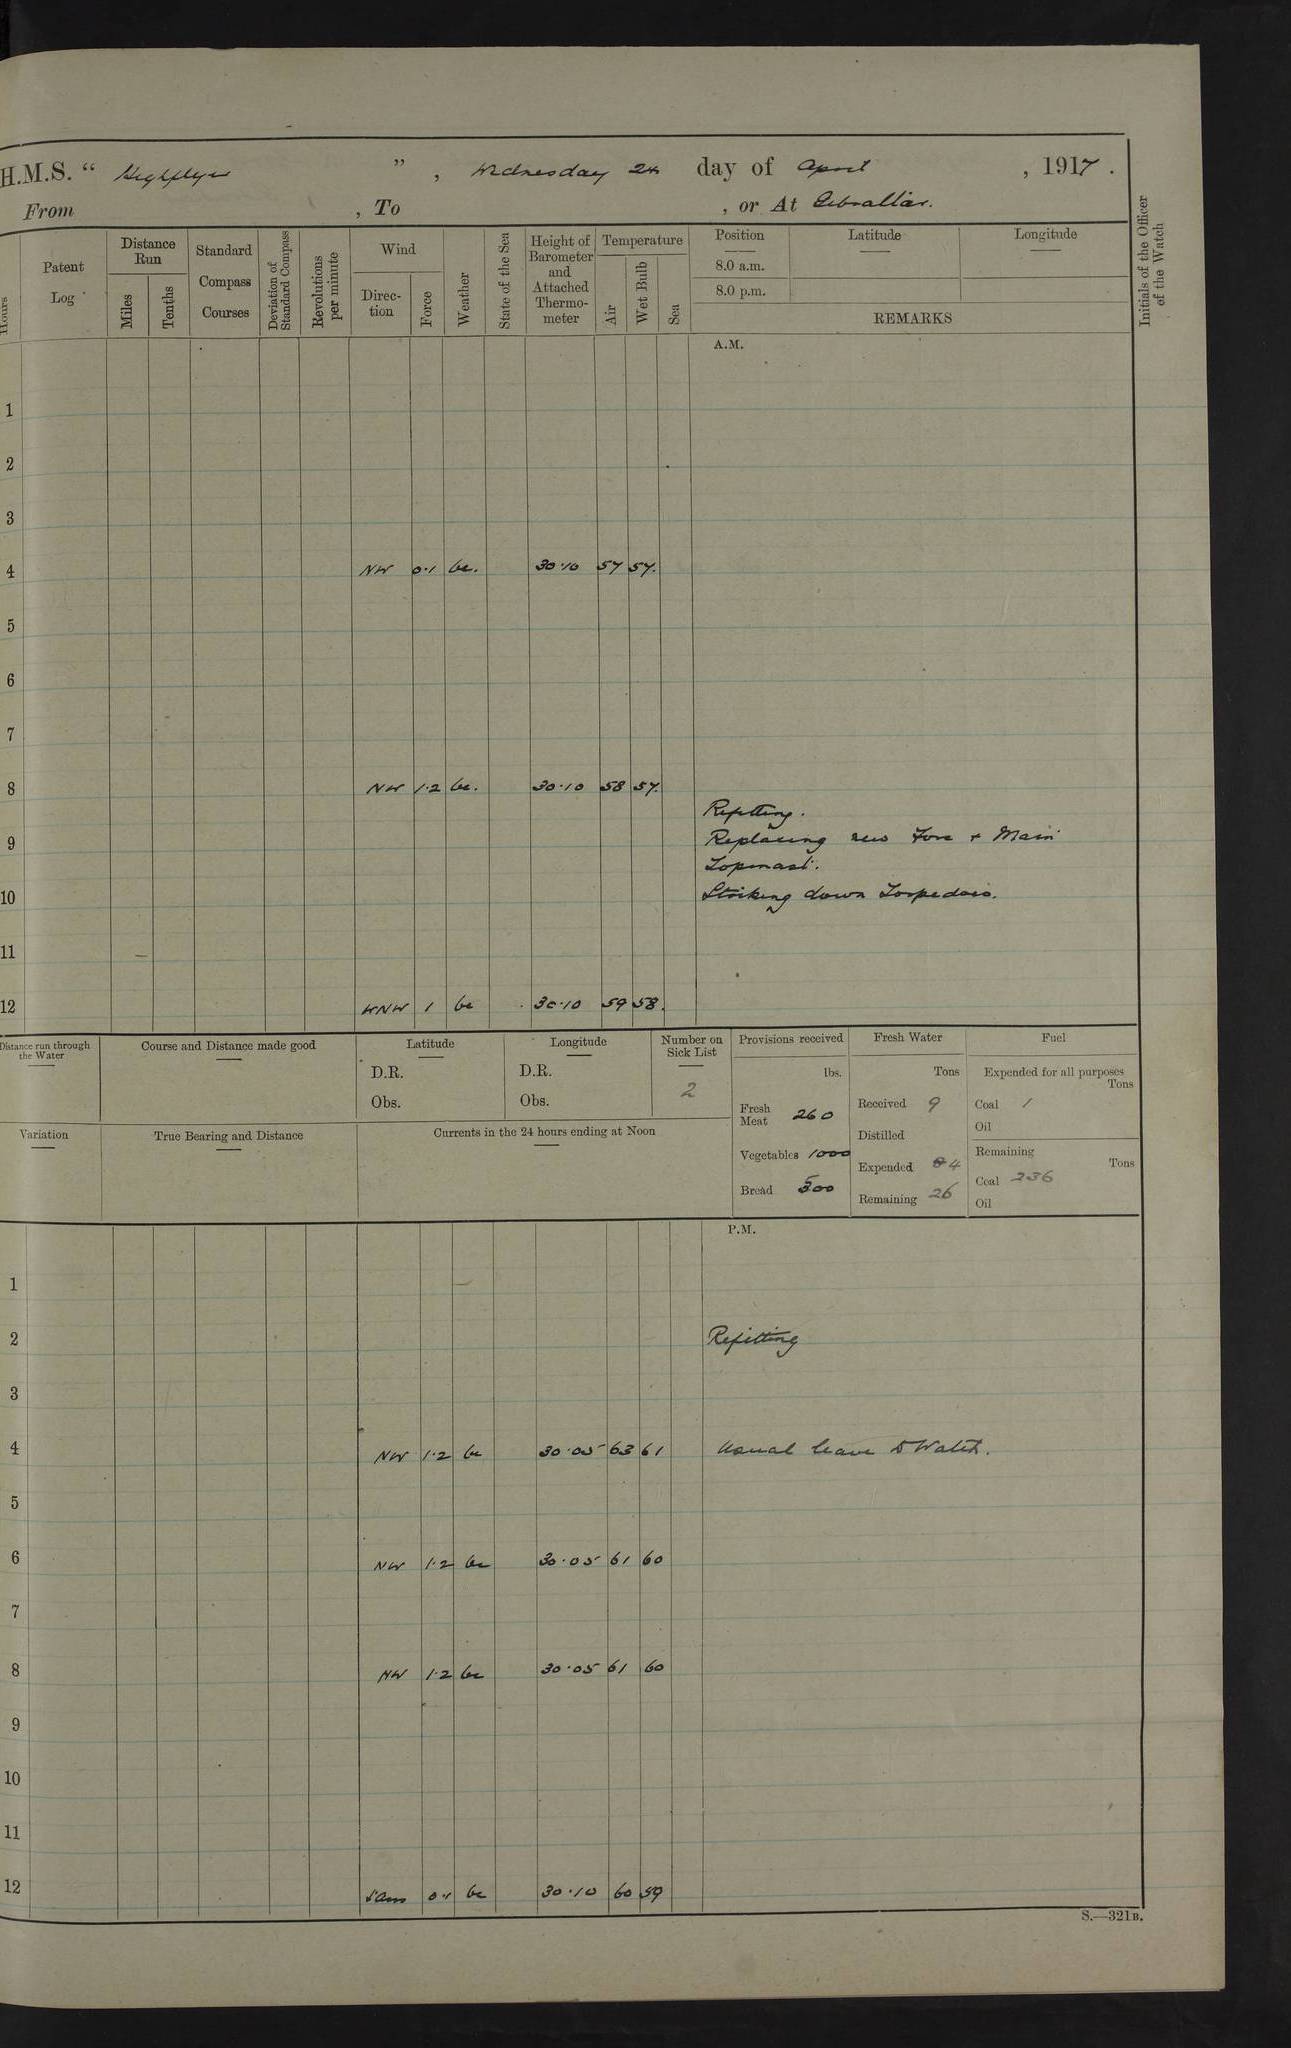 H.M.S. “ Highflyer ”, Wednesday 24 day of April, 1917.
From , To , or At Gibraltar.
Hours
Patent Log
Distance Run
Miles
Tenths
Standard Compass Courses
Deviation of Standard Compass
Revolutions per minute
Wind
Direction
Force
Weather
State of the Sea
Height of Barometer and Attached Thermometer
Temperature
Air
Wet Bulb
Sea
Position
8.0 a.m.
8.0 p.m.
Latitude
Longitude
REMARKS
Initials of the Officer of the Watch
A.M.
1
2
3
4 NW 0.1 bc. 30.10 57 57.
5
6
7
8 NW 1.2 bc. 30.10 58 57.
Refitting.
9 Replacing new Fore + Main
Topmast.
10 Striking down Torpedoes.
11
12 WNW 1 bc 30.10 59 58.
Distance run through the Water
Course and Distance made good
Latitude
D.R.
Obs.
Longitude
D.R.
Obs.
Number on Sick List
2
Provisions received
lbs.
Fresh Meat 260
Vegetables 1000
Bread 500
Fresh Water
Tons
Received 9
Distilled
Expended 4
Remaining 26
Fuel
Expended for all purposes
Tons
Coal 1
Oil
Remaining
Tons
Coal 236
Oil
Variation
True Bearing and Distance
Currents in the 24 hours ending at Noon
P.M.
1
2 Refitting
3
4 NW 1.2 bc 30.05 63 61 Usual leave to Watch.
5
6 NW 1.2 bc 30.05 61 60
7
8 NW 1.2 bc 30.05 61 60
9
10
11
12 0.1 bc 30.10 60 59
S.—321B.